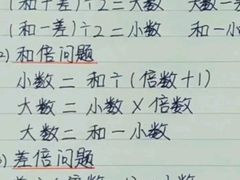 (和+差)÷2=大数 大数-
(和-差)÷2=小数 和-小
2) 和倍问题
小数=和÷(倍数+1)
大数=小数×倍数
大数=和-小数
) 差倍问题